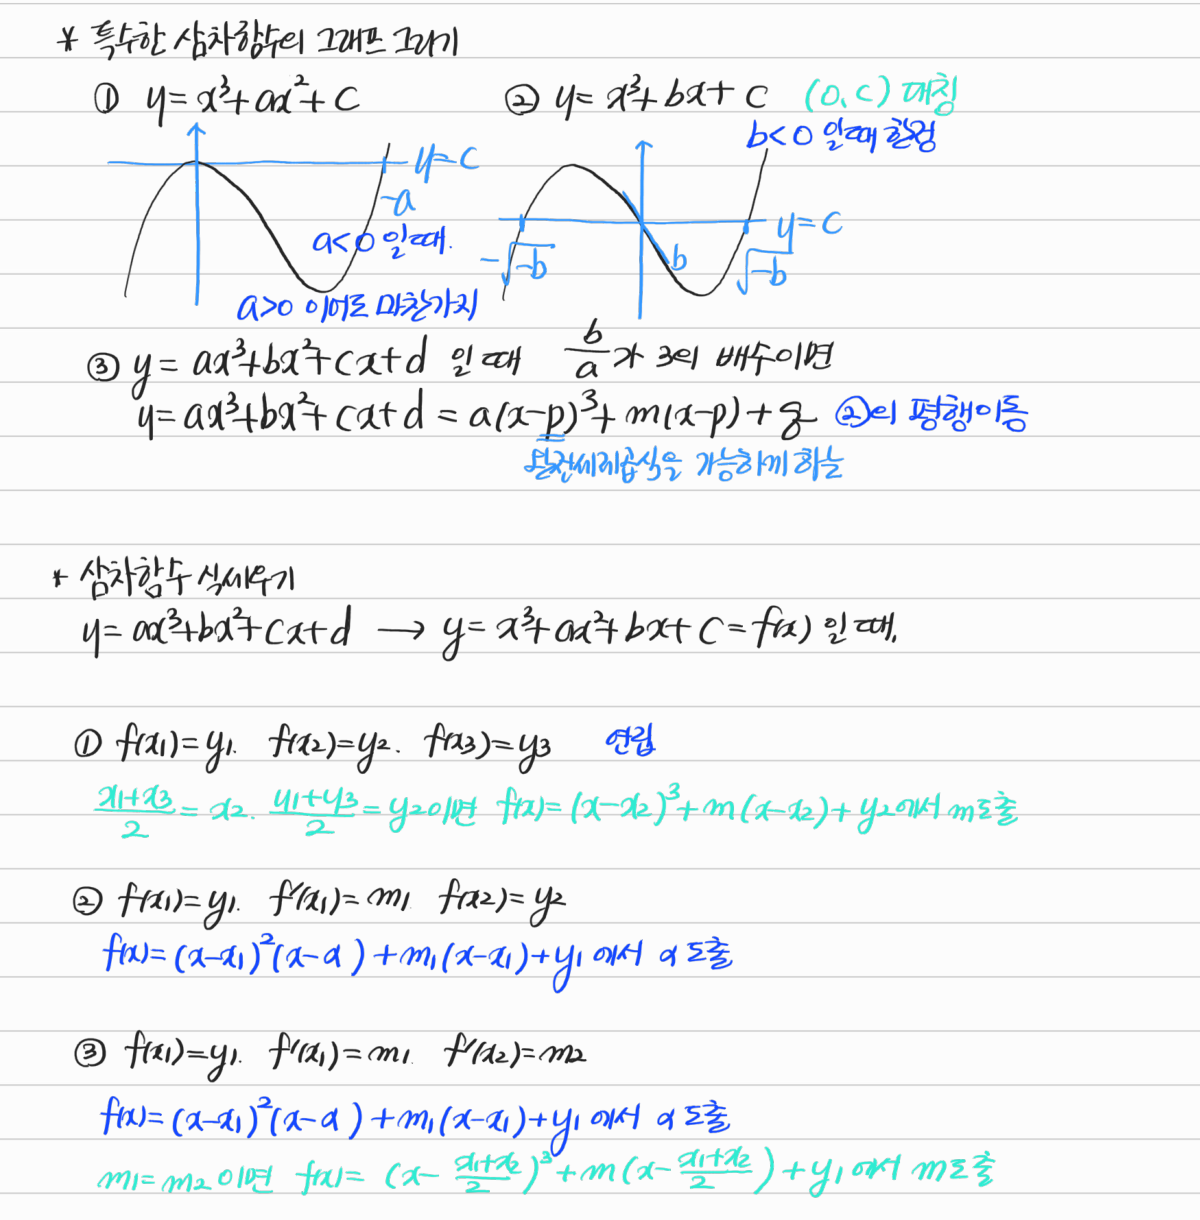 * 특수한 삼차함수의 그래프 그리기
① y = x³ + ax² + c
② y = x³ + bx + c (0, c) 대칭
b<0 일때 한정
y=c
-a
a<0 일때.
a>0 이어도 마찬가지
y=c
-√-b
b
√-b
③ y = ax³+bx²+cx+d 일때 b/a가 3의 배수이면
y=ax³+bx²+cx+d = a(x-p)³+m(x-p)+q ②의 평행이동
을 가능하게 하는
* 삼차함수 식세우기
y=ax³+bx²+cx+d → y=x³+ax²+bx+c=f(x) 일때,
① f(x₁)=y₁. f(x₂)=y₂. f(x₃)=y₃ 연립
(x₁+x₃)/2 = x₂. (y₁+y₃)/2 = y₂이면 f(x)=(x-x₂)³+m(x-x₂)+y₂에서 m도출
② f(x₁)=y₁. f'(x₁)=m₁ f(x₂)=y₂
f(x)=(x-x₁)²(x-α)+m₁(x-x₁)+y₁에서 α도출
③ f(x₁)=y₁. f'(x₁)=m₁ f'(x₂)=m₂
f(x)=(x-x₁)²(x-α)+m₁(x-x₁)+y₁에서 α도출
m₁=m₂이면 f(x)=(x-(x₁+x₂)/2)³+m(x-(x₁+x₂)/2)+y₁에서 m도출